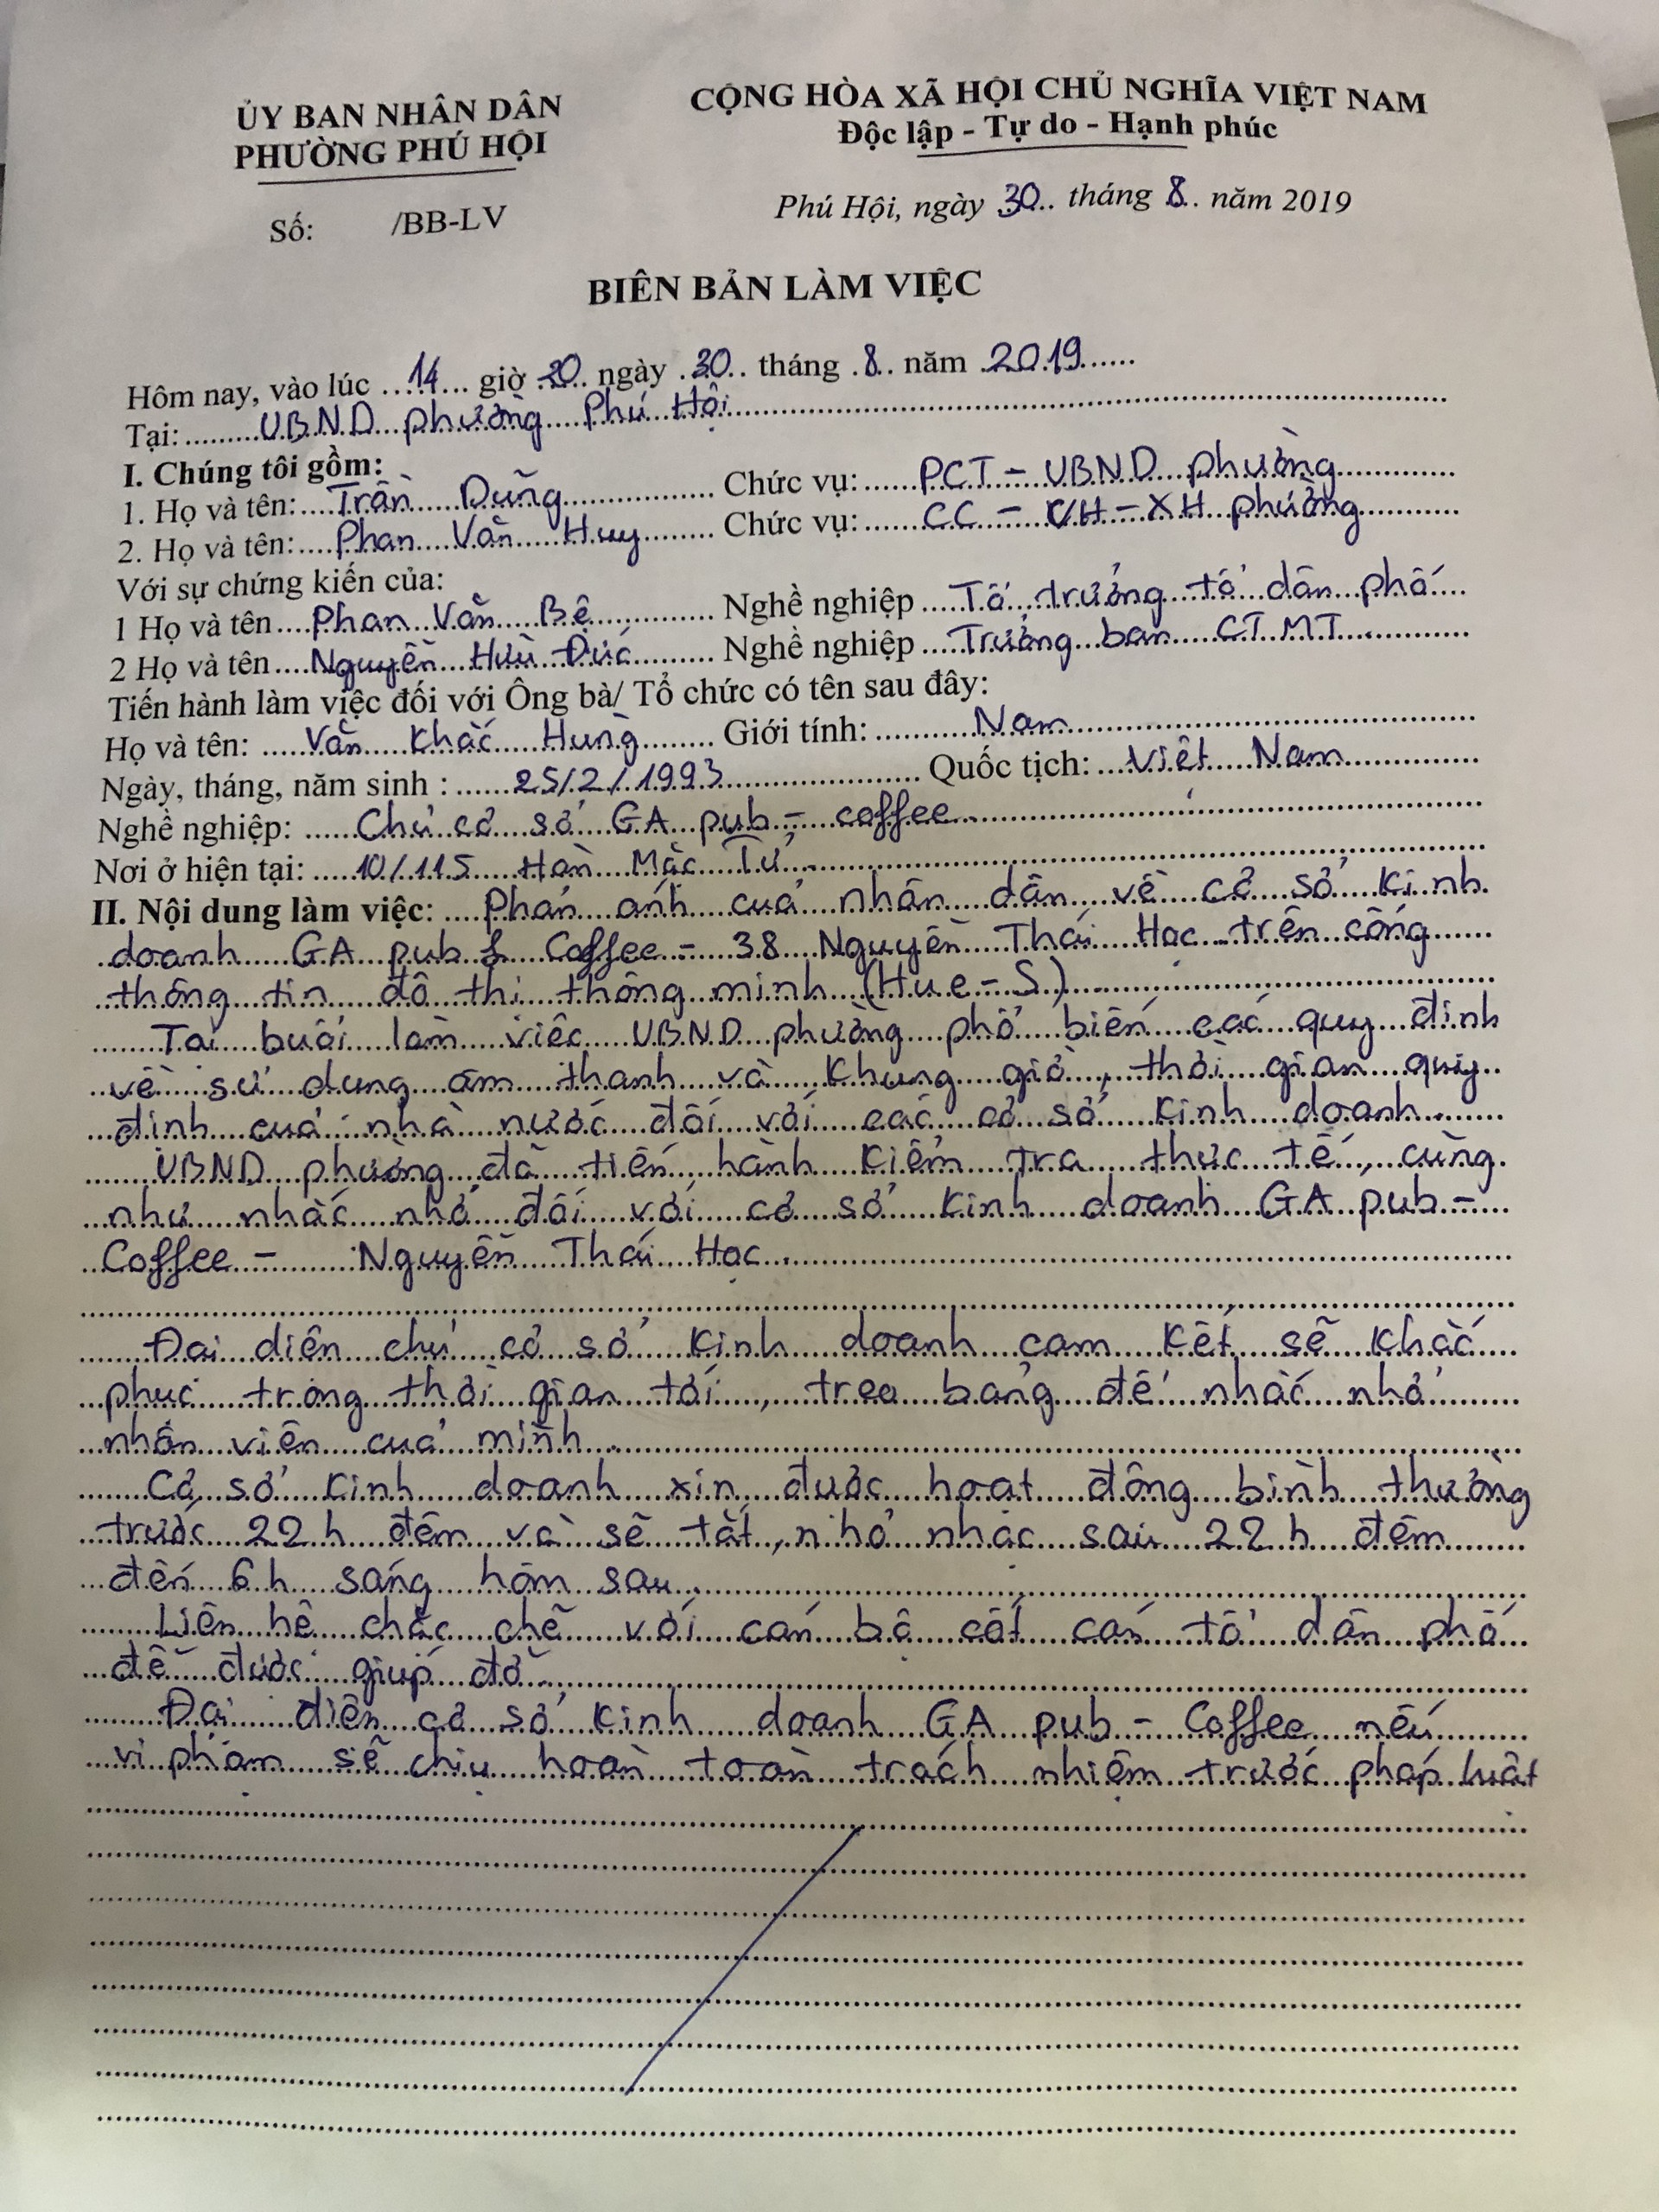 ỦY BAN NHÂN DÂN
PHƯỜNG PHÚ HỘI
CỘNG HÒA XÃ HỘI CHỦ NGHĨA VIỆT NAM
Độc lập - Tự do - Hạnh phúc
Số: /BB-LV
Phú Hội, ngày 30 tháng 8 năm 2019
BIÊN BẢN LÀM VIỆC
Hôm nay, vào lúc 14 giờ 20 ngày 30 tháng 8 năm 2019
Tại: UBND phường Phú Hội
I. Chúng tôi gồm:
1. Họ và tên: Trần Dũng Chức vụ: PCT - UBND phường
2. Họ và tên: Phan Văn Huy Chức vụ: CC - VH - XH phường
Với sự chứng kiến của:
1 Họ và tên Phan Văn Bệ Nghề nghiệp Tổ trưởng tổ dân phố
2 Họ và tên Nguyễn Hữu Đức Nghề nghiệp Trưởng ban CTMT
Tiến hành làm việc đối với Ông bà/ Tổ chức có tên sau đây:
Họ và tên: Văn Khắc Hùng Giới tính: Nam
Ngày, tháng, năm sinh : 25/2/1993 Quốc tịch: Việt Nam
Nghề nghiệp: Chủ cơ sở GA pub - coffee
Nơi ở hiện tại: 10/115 Hàn Mặc Tử
II. Nội dung làm việc: Phản ánh của nhân dân về cơ sở kinh
doanh GA pub & Coffee - 38 Nguyễn Thái Học trên cổng
thông tin đô thị thông minh (Hue-S)
Tại buổi làm việc UBND phường phổ biến các quy định
về sử dụng âm thanh và khung giờ, thời gian quy
định của nhà nước đối với các cơ sở kinh doanh
UBND phường đã tiến hành kiểm tra thực tế, cũng
như nhắc nhở đối với cơ sở kinh doanh GA pub -
Coffee - Nguyễn Thái Học
Đại diện chủ cơ sở kinh doanh cam kết sẽ khắc
phục trong thời gian tới, treo bảng để nhắc nhở
nhân viên của mình
Cơ sở kinh doanh xin được hoạt động bình thường
trước 22h đêm và sẽ tắt, nhỏ nhạc sau 22h đêm
đến 6h sáng hôm sau
Liên hệ chặc chẽ với cán bộ cốt cán tổ dân phố
để được giúp đỡ
Đại diện cơ sở kinh doanh GA pub - Coffee nếu
vi phạm sẽ chịu hoàn toàn trách nhiệm trước pháp luật